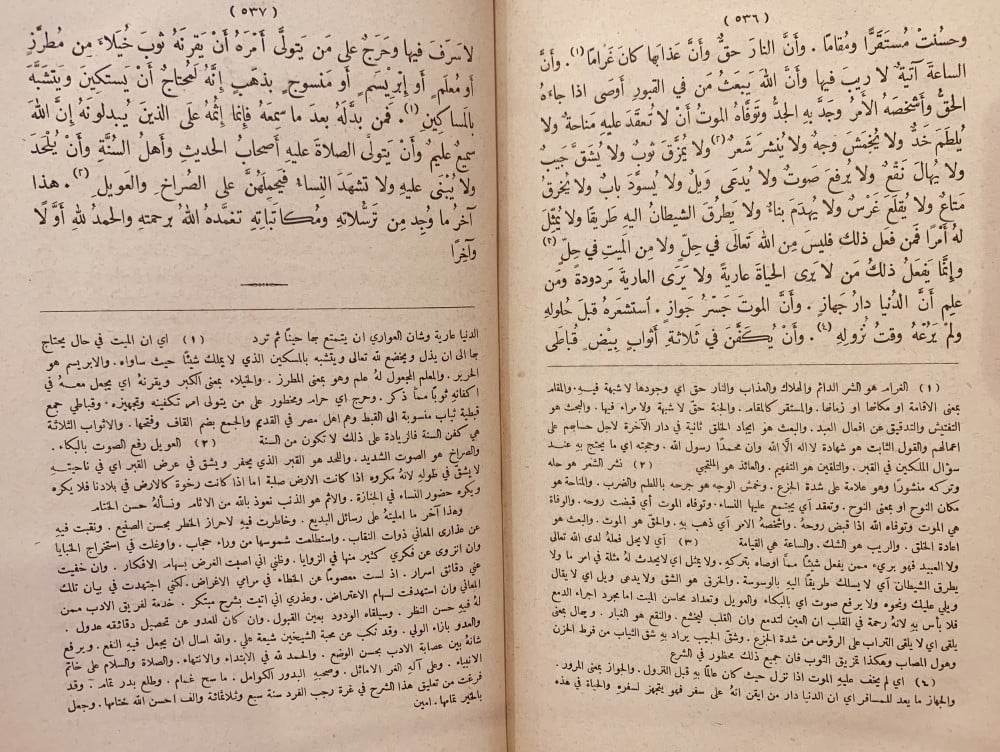 (٥٣٦)
وحسُنتْ مُستَقَرًّا ومُقامًا . وأنَّ النارَ حقٌّ وأنَّ عذابها كانَ غَرامًا (١) . وأنَّ
الساعةَ آتيةٌ لا ريبَ فيها وأنَّ اللهَ يبعَثُ مَن في القبورِ أوصَى اذا جاءَهُ
الحقُّ وأشخصَهُ الأمرُ وجَدَّ بهِ الجدُّ وتوفَّاهُ الموتُ أنْ لا تُعقَدَ عليهِ مَناحةٌ ولا
يُلطَمَ خدٌّ ولا يُخمَشَ وجهٌ ولا يُنشرَ شَعرٌ (٢) ولا يُمزَّقَ ثوبٌ ولا يُشَقَّ جَيبٌ
ولا يُهالَ نَقْعٌ ولا يُرفعَ صوتٌ ولا يُدعَى وَيلٌ ولا يُسوَّدَ بابٌ ولا يُخرَقَ
مَتاعٌ ولا يُقلَعَ غَرْسٌ ولا يُهدَمَ بناءٌ ولا يَطرُقَ الشيطانُ اليهِ طَريقًا ولا يُمثِلَ
لهُ أمرًا فمن فعل ذلك فليسَ مِن اللهِ تعالَى في حِلٍّ ولا مِن الميتِ في حِلٍّ (٣)
وإنَّما يَفعَلُ ذلكَ مَن لا يرَى الحياةَ عاريةً ولا يَرَى العاريةَ مَردودةً ومَن
علِمَ أنَّ الدُّنيا دارُ جَهازٍ . وأنَّ الموتَ جَسْرُ جَوازٍ . استشعرَهُ قبلَ حُلولهِ
ولم يَرُعْهُ وقتُ نُزولِهِ (٤) . وأنْ يُكفَّنَ في ثلاثةِ أثوابٍ بيْضٍ قُباطَى
(١) الغرام هو الشر الدائم والهلاك والعذاب والنار حق اي وجودها لا شبهة فيه . والمقام
بمعنى الاقامة او مكانها او زمانها . والمستقر كالمقام . والجنة حق لا شبهة ولا مراء فيها . والبحث هو
التفتيش والتدقيق عن افعال العبد . والبعث هو ايجاد الخلق ثانية في دار الآخرة لاجل حسابهم على
اعمالهم والقول الثابت هو شهادة لا اله الا الله وان محمدًا رسول الله . وحجته اي ما يحتج به عند
سؤال الملكين في القبر . والتلقين هو التفهيم . والعائذ هو الملتجي (٢) نشر الشعر هو حله
وتركه منشورًا وهو علامة على شدة الجزع . وخمش الوجه هو جرحه باللطم والضرب . والمناحة هو
مكان النوح او بمعنى النوح . وتعقد اي يجتمع عليها النساء . وتوفاه الموت أي قبضت روحه . والوفاة
هي الموت وتوفاه الله إذا قبض روحهُ . واشخصهُ الامر أي ذهب به . والحق هو الموت . والبعث هو
اعادة الخلق . والريب هو الشك . والساعة هي القيامة (٣) أي لا يحل فعلهُ لدى الله تعالى
ولا العبيد فهو بريء ممن يفعل شيئًا مما اوصاه بتركه . ولا يمثل اي لا يحدث لهُ مثلهُ في امر ما ولا
يطرق الشيطان اي لا يسلك طريقًا اليه بالوسوسة . والخرق هو الشق ولا يدعى ويل اي لا يقال
ويلي عليك ونحوه ولا يرفع صوت اي بالبكاء والعويل وتعداد محاسن الميت اما مجرد اجراء الدمع
فلا بأس به لانهُ رحمة في القلب ان العين لتدمع وان القلب ليخشع . والنقع هو الغبار . ويهال بمعنى
يلقى اي لا يلقى التراب على الرؤس من شدة الجزع . وشق الجيب يراد به شق الثياب من فرط الحزن
وهول المصاب وهكذا تمزيق الثوب فان جميع ذلك محظور في الشرع
(٤) اي لم يخف عليهِ الموت اذا نزل حيث كان عالمًا بهِ قبل النزول . والجواز بمعنى المرور .
والجهاز ما يعد للمسافر اي ان الدنيا دار من ايقن انهُ على سفر فهو يتجهز لسفره والحياة في هذه
(٥٣٧)
لاسَرَفَ فيها وحَرَجٌ على مَن يَتولَّى أمْرَهُ أنْ يَقرِنَهُ ثوبَ خُيَلاءَ مِن مُطرَّزٍ
أو مُعلَمٍ أو إبْرِيْسِمٍ أو مَنسوجٍ بذَهَبٍ إنَّهُ لَمُحتاجٌ أنْ يَستكِينَ ويَتشبَّهَ
بالمساكينِ (١) . فَمن بدَّلَهُ بعدَ ما سمِعَهُ فإنما إثمُهُ علَى الذينَ يُبدلونَهُ إنَّ اللهَ
سميعٌ عليمٌ وأنْ يتولَّى الصلاةَ عليهِ أصحابُ الحديثِ وأهلُ السُّنَّةِ وأنْ يُلْحَدَ
ولا يُبْنَى عليهِ ولا تشهَدَ النساءُ فيَحمِلْهُنَّ على الصُراخِ والعَويلِ (٢) . هذا
آخرُ ما وُجِدَ مِن تَرسُّلاتِهِ ومُكاتَباتِهِ تغمَّدهُ اللهُ برحمتهِ والحمدُ للهِ أوَّلًا
وآخِرًا
الدنيا عارية وشان العواري ان يتمتع بها حينًا ثم ترد (١) اي ان الميت في حال يحتاج
بها الى ان يذل ويخضع لله تعالى ويتشبه بالمسكين الذي لا يملك شيئًا حيث ساواه . والابريسم هو
الحرير . والمعلم المجعول لهُ علم وهو بمعنى المطرز . والخيلاء بمعنى الكبر ويقرنهُ اي يجعل معهُ في
اكفانهِ ثوبًا مما ذكر . وحرج اي حرام ومحظور على من يتولى امر تكفينه وتجهيزه . وقباطي جمع
قبطية ثياب منسوبة الى القبط وهم اهل مصر في القديم والجمع بضم القاف وفتحها . والاثواب الثلاثة
هي كفن السنة فالزيادة على ذلك لا تكون من السنة (٢) العويل رفع الصوت بالبكاء .
والصراخ هو الصوت الشديد . واللحد هو القبر الذي يحفر ويشق في عرض القبر اي في ناحيتهِ
لا يشق في طوله لانهُ مكروه اذا كانت الارض صلبة اما اذا كانت رخوة كالارض في بلادنا فلا يكره
ويكره حضور النساء في الجنازة . والاثم هو الذنب نعوذ بالله من الآثام ونسألهُ حسن الختام
وهذا آخر ما امليتهُ على رسائل البديع . وخاطرت فيهِ لاحراز الخطر بحسن الصنيع . ونقبت فيهِ
عن عذارى المعاني ذوات النقاب . واستطلعت شموسها من وراء حجاب . واوغلت في استخراج الخبايا
وان انزوى عن فكري كثير منها في الزوايا . وظني اني اصبت الغرض بسهام الافكار . وان خفيت
علي دقائق اسرار . اذ لست معصومًا عن الخطاء في مرامي الاغراض . لكني اجتهدت في بيان تلك
المعاني وان استهدفت لسهام الاعتراض . وعذري اني اتيت بشرح مبتكر . خدمة لفريق الادب ممن
لهُ فيهِ حسن النظر . وسيلقاه الودود بعين القبول . وان كان للعدو عن تحصيل دقائقه عدول .
والعدو بازاء الولي . وقد نكب عن محبة الشيخين شيعة علي . والله اسال ان يجعل فيه النفع . ويرفع
شانهُ بين عصابة الادب بحسن الوضع . والحمد لله في الابتداء والانتهاء . والصلاة والسلام على خاتم
الانبياء . وعلى آله الغر الاماثل . وصحبهِ البدور الكوامل . ما سح غمام . وطلع بدر تمام . وقد
فرغت من تعليق هذا الشرح في غرة رجب الفرد سنة سبع وثلاثمائة والف احسن الله ختامها . وجعل
بالخير تمامها . امين